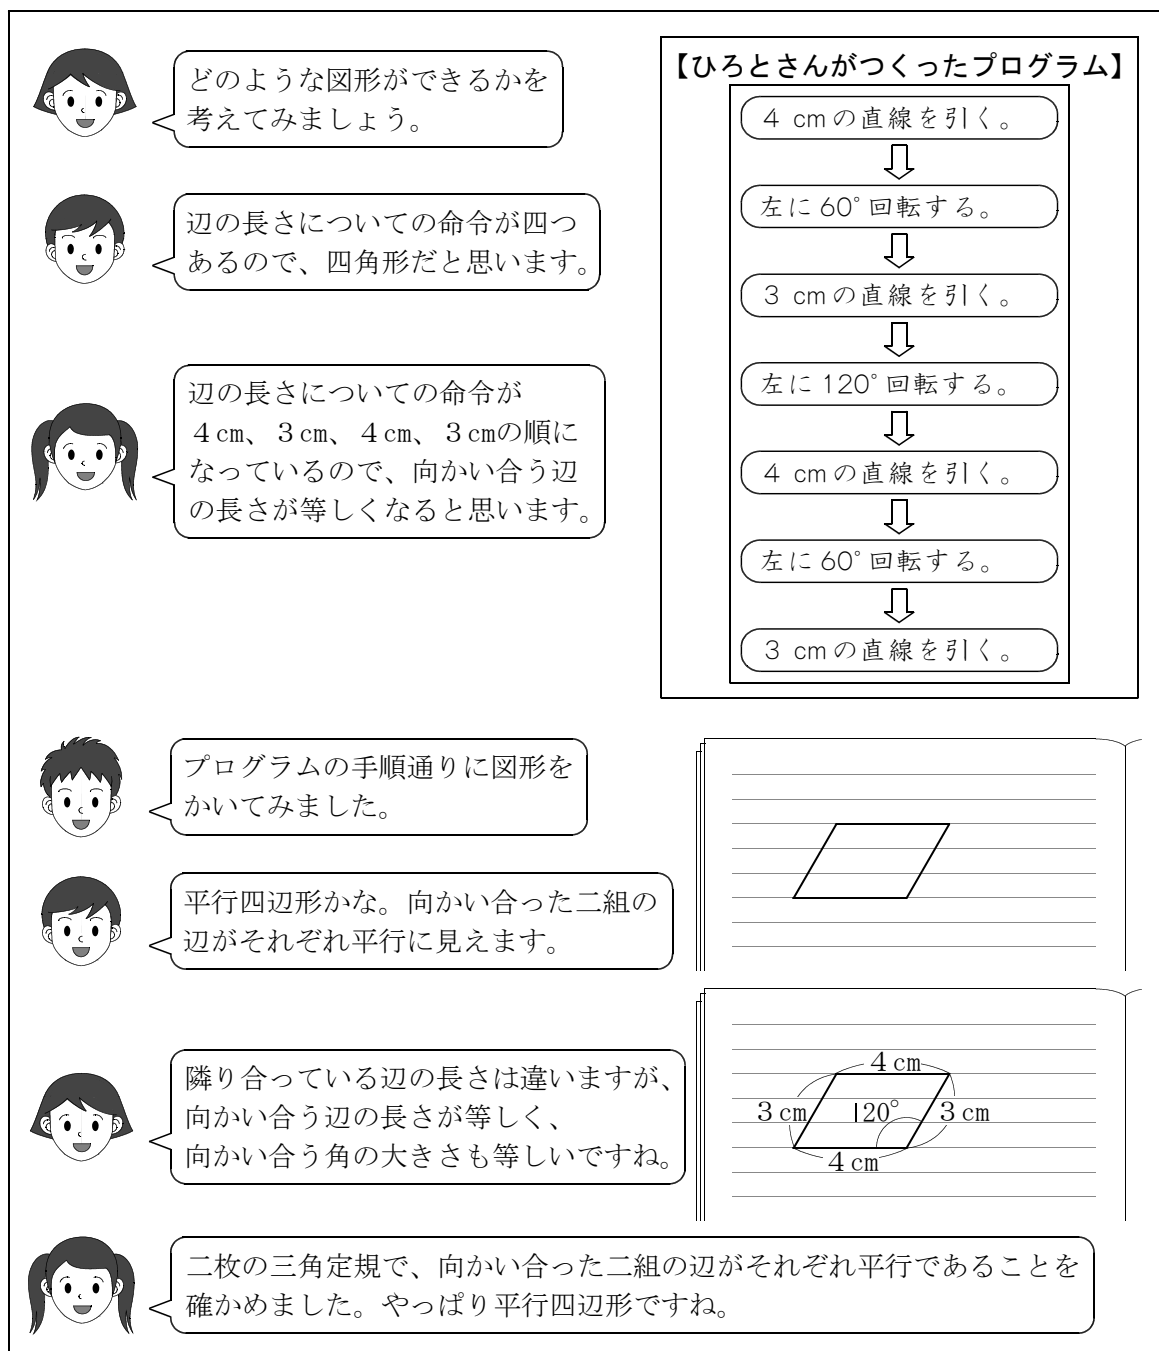 どのような図形ができるかを
考えてみましょう。
辺の長さについての命令が四つ
あるので、四角形だと思います。
辺の長さについての命令が
4cm、3cm、4cm、3cmの順に
なっているので、向かい合う辺
の長さが等しくなると思います。
【ひろとさんがつくったプログラム】
4 cmの直線を引く。
左に60°回転する。
3 cmの直線を引く。
左に120°回転する。
4 cmの直線を引く。
左に60°回転する。
3 cmの直線を引く。
プログラムの手順通りに図形を
かいてみました。
平行四辺形かな。向かい合った二組の
辺がそれぞれ平行に見えます。
隣り合っている辺の長さは違いますが、
向かい合う辺の長さが等しく、
向かい合う角の大きさも等しいですね。
4cm
3cm
120°
3cm
4cm
二枚の三角定規で、向かい合った二組の辺がそれぞれ平行であることを
確かめました。やっぱり平行四辺形ですね。